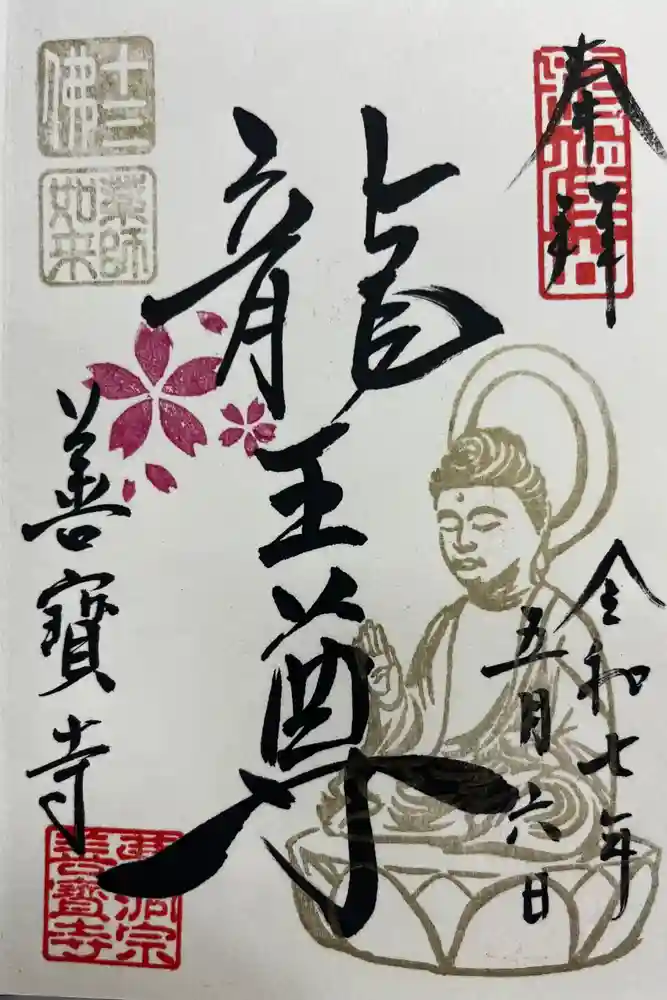 奉拝
令和七年
五月六日
龍王尊
十三佛
薬師如来
善寳寺
曹洞宗
善寳寺